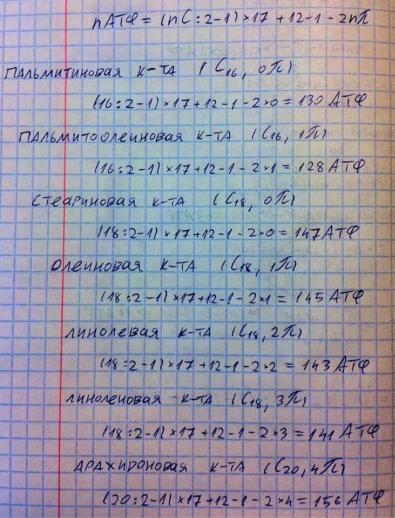 nАТФ = (nC:2-1)×17+12-1-2nπ
ПАЛЬМИТИНОВАЯ К-ТА (C16, 0π)
(16:2-1)×17+12-1-2×0 = 130 АТФ
ПАЛЬМИТООЛЕИНОВАЯ К-ТА (C16, 1π)
(16:2-1)×17+12-1-2×1 = 128 АТФ
СТЕАРИНОВАЯ К-ТА (C18, 0π)
(18:2-1)×17+12-1-2×0 = 147 АТФ
ОЛЕИНОВАЯ К-ТА (C18, 1π)
(18:2-1)×17+12-1-2×1 = 145 АТФ
ЛИНОЛЕВАЯ К-ТА (C18, 2π)
(18:2-1)×17+12-1-2×2 = 143 АТФ
ЛИНОЛЕНОВАЯ К-ТА (C18, 3π)
(18:2-1)×17+12-1-2×3 = 141 АТФ
АРАХИДОНОВАЯ К-ТА (C20, 4π)
(20:2-1)×17+12-1-2×4 = 156 АТФ